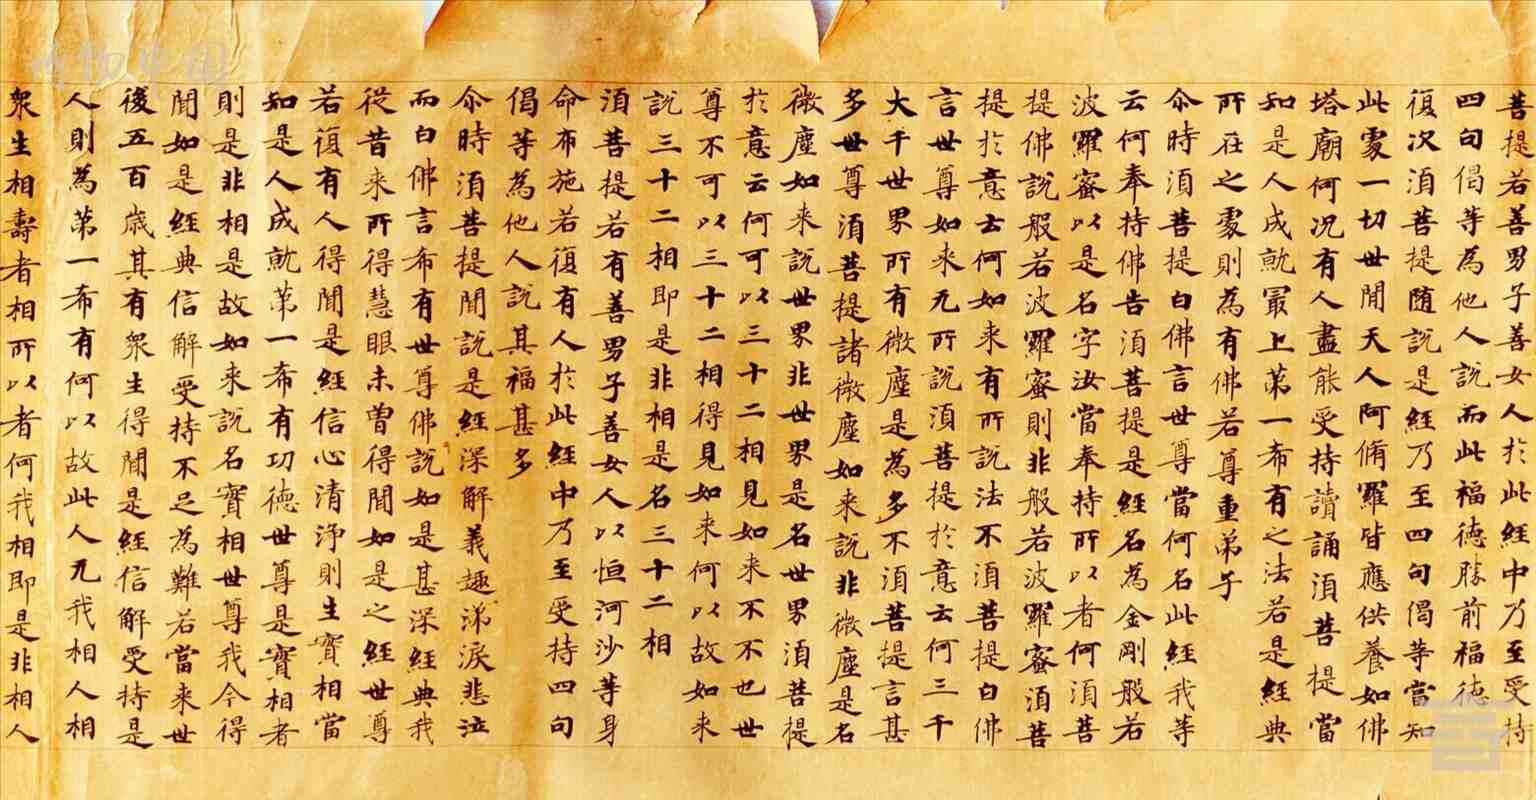 菩提若善男子善女人於此経中乃至受持
四句偈等為他人説而此福徳勝前福徳
復次湏菩提随説是経乃至四句偈等當知
此䖏一切世間天人阿脩羅皆應供養如佛
塔廟何况有人盡能受持讀誦湏菩提當
知是人成就冣上苐一希有之法若是経典
所在之䖏則為有佛若尊重弟子
尒時湏菩提白佛言世尊當何名此経我等
云何奉持佛告湏菩提是経名為金剛般若
波羅蜜以是名字汝當奉持所以者何湏菩
提佛説般若波羅蜜則非般若波羅蜜湏菩
提於意云何如来有所説法不湏菩提白佛
言世尊如来无所説湏菩提於意云何三千
大千世界所有微塵是為多不湏菩提言甚
多世尊湏菩提諸微塵如来説非微塵是名
微塵如来説世界非世界是名世界湏菩提
於意云何可以三十二相見如来不不也世
尊不可以三十二相得見如来何以故如来
説三十二相即是非相是名三十二相
湏菩提若有善男子善女人以恒河沙等身
命布施若復有人於此経中乃至受持四句
偈等為他人説其福甚多
尒時湏菩提聞説是経深解義趣涕淚悲泣
而白佛言希有世尊佛説如是甚深経典我
従昔来所得慧眼未曽得聞如是之経世尊
若復有人得聞是経信心清浄則生實相當
知是人成就苐一希有功徳世尊是實相者
則是非相是故如来説名實相世尊我今得
聞如是経典信解受持不足為難若當来世
後五百歳其有衆生得聞是経信解受持是
人則為苐一希有何以故此人无我相人相
衆生相壽者相所以者何我相即是非相人